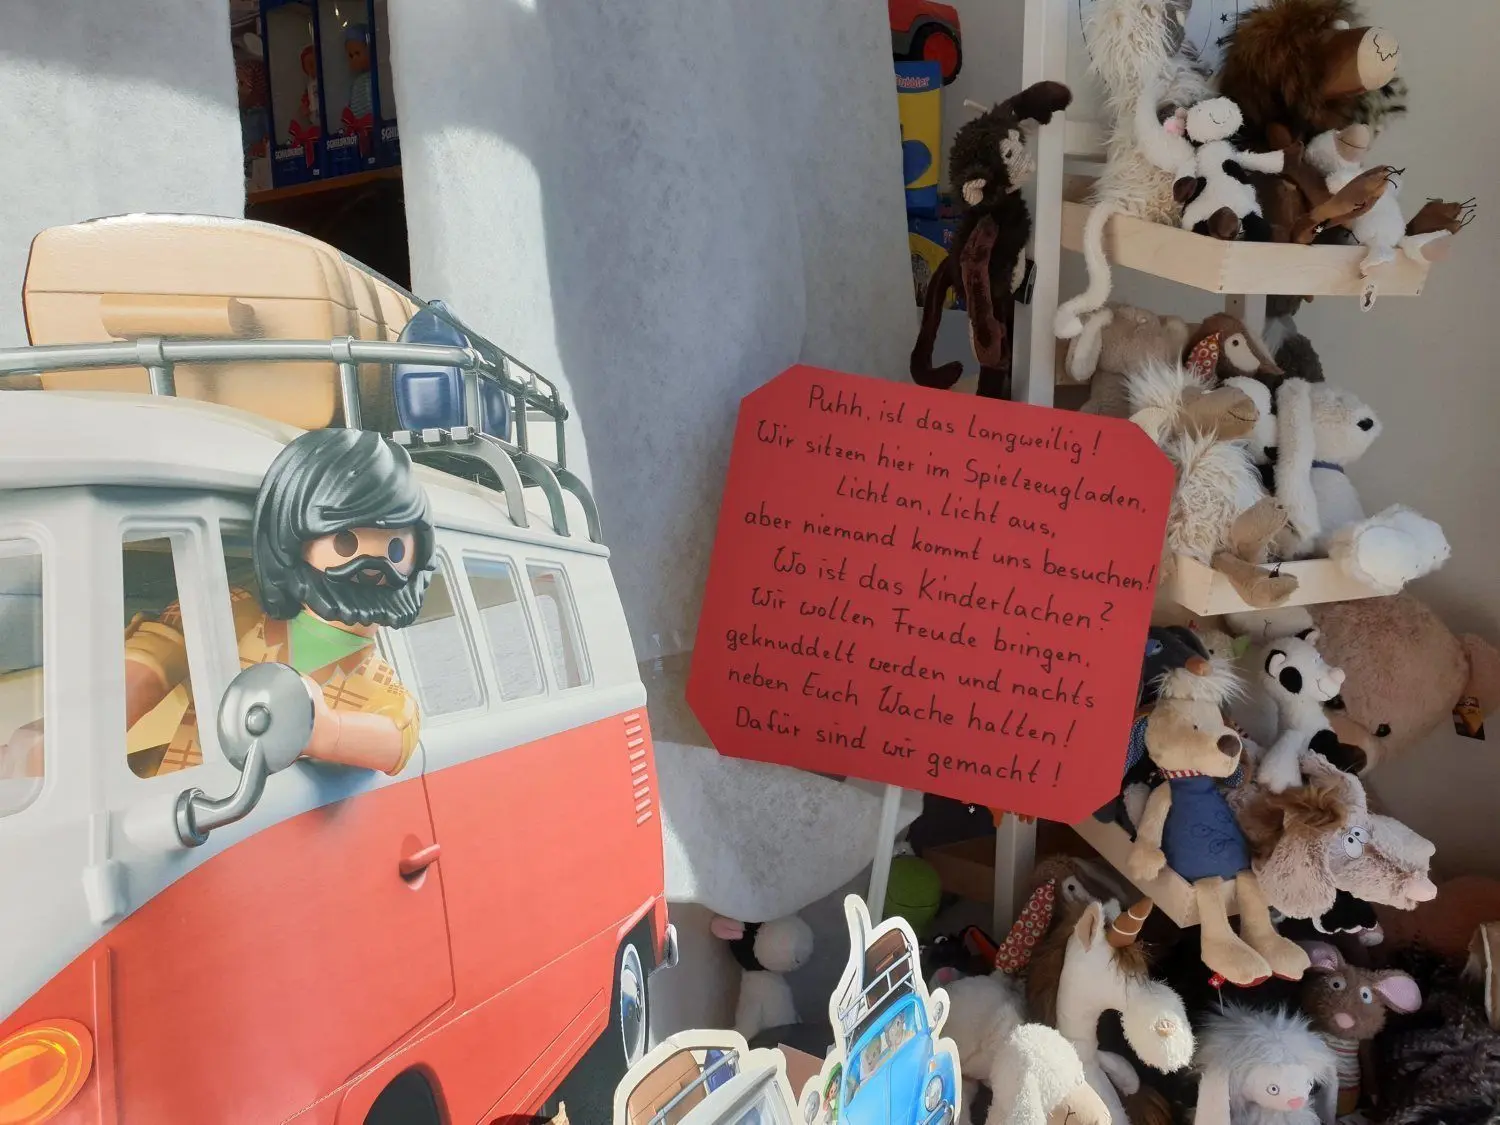 SCHILDKRÖT
SCHILDKRÖT
Bubbler
Puhh, ist das langweilig!
Wir sitzen hier im Spielzeugladen,
Licht an, Licht aus,
aber niemand kommt uns besuchen!
Wo ist das Kinderlachen?
Wir wollen Freude bringen,
geknuddelt werden und nachts
neben Euch Wache halten!
Dafür sind wir gemacht!